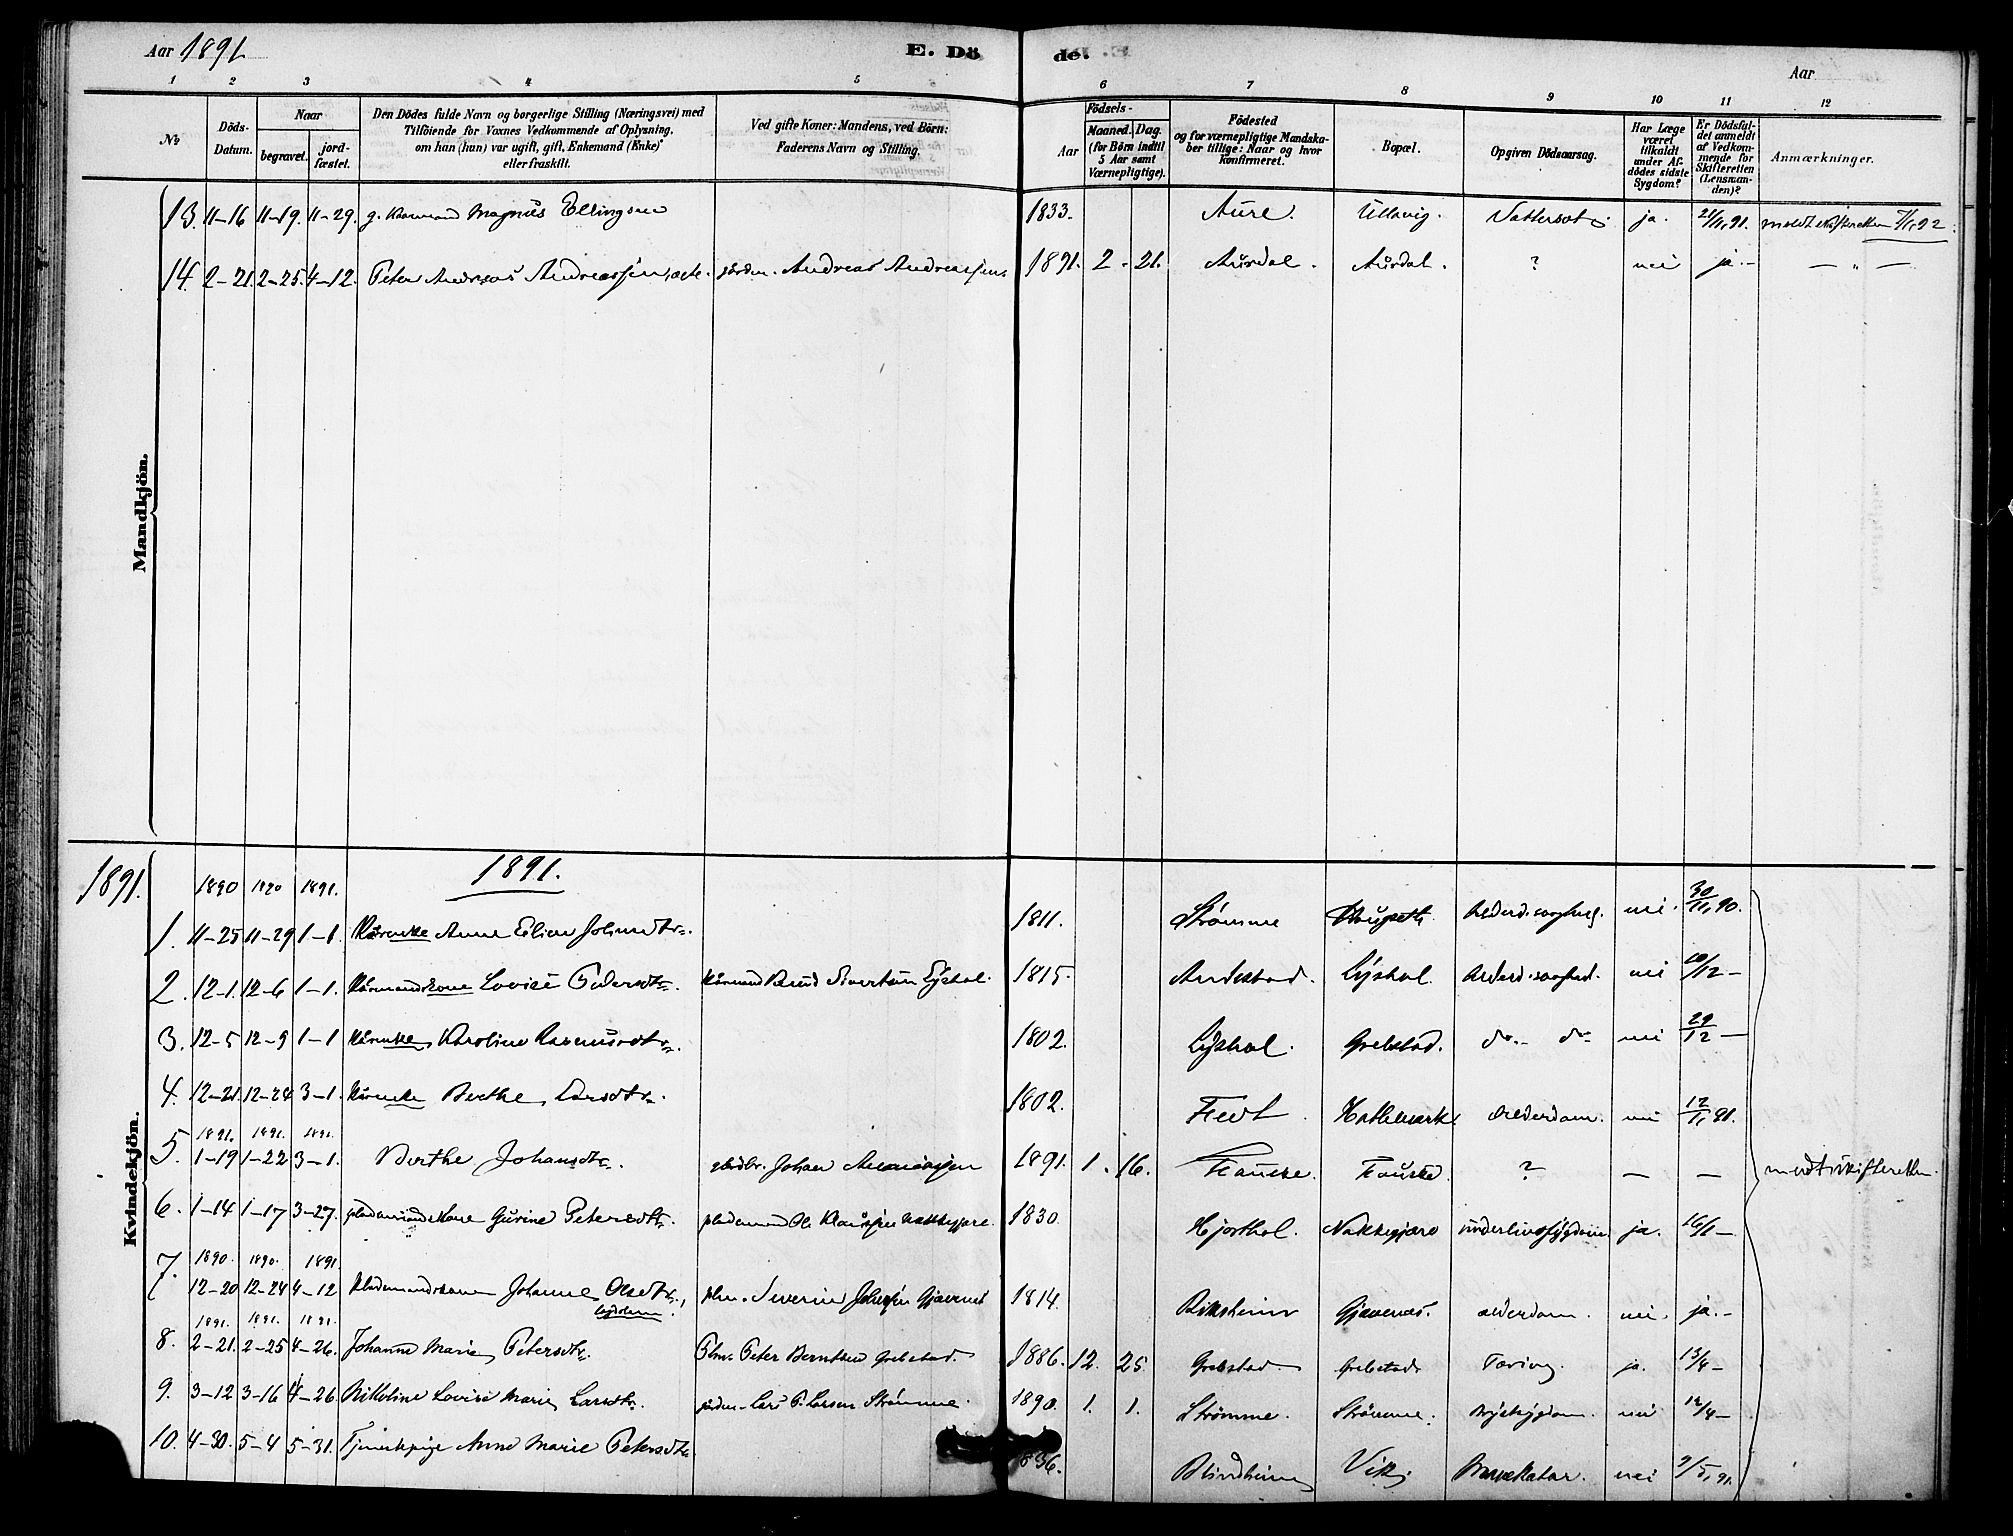 Aar 1891
E. Dö de.
Aar
1 2 3 4 5 6 7 8 9 10 11 12
No
Döds-Datum.
Naar
begravet.
jord-fæstet.
Den Dödes fulde Navn og borgerlige Stilling (Næringsvei) med
Tilföiende for Voxnes Vedkommende af Oplysning,
om han (hun) var ugift, gift, Enkemand (Enke)
eller fraskilt.
Ved gifte Koner: Mandens, ved Börn:
Faderens Navn og Stilling.
Födsels-
Aar
Maaned. Dag.
(for Börn indtil
5 Aar samt
Værnepligtige).
Födested
og for værnepligtige Mandska-
ber tillige: Naar og hvor
Konfirmeret.
Bopæl.
Opgiven Dödsaarsag.
Har Læge
været
tilkaldt
under Af-
dödes sidste
Sygdom?
Er Dödsfal-
det anmeldt
af Vedkom-
mende for
Skifteretten
(Lensman-
den)?
Anmærkninger.
Mandkjön.
13. 11-16 11-19. 11-29. g. Magnus Ellingsen 1833. Aure. Ullavig. Vattersot ja. 21/11,91. meldt skifteretten 7/1,92.
14. 2-21. 2-25. 4-12. Peter Andreas Andreassen, Andreas Andreassen 1891. 2. 21. Aurdal. Aurdal. ? nei ja.- — „ —
1891.
Kvindekjön.
1890 1890 1891. 1891.
1. 11-25 11-29 1-1. Kårenke Anne Eline Johnsdtr. 1811. Strømme nei. 30/11,90.
2. 12-1. 12-6 1-1. Kårmandskone Lovise Pedersdtr. Kårmand Knud Sivertsen Lyshol. 1815. Andestad. Lyshol. Alderdomssvaghed. nei 10/12-
3. 12-5 12-9 1-1 Kårenke Karoline Rasmusdtr. 1802. Lyshol. Grebstad. do.- do- nei 29/12 —
4. 12-21. 12-24 3-1. Kårenke Berthe Larsdtr. 1802. Fedt. Hatlemark. Alderdom. nei 12/1,91.
1891. 1891. 1891.
5. 1-19 1-22 3-1. Berthe Johansdtr. Johan 1891. 1. 16. Fauske. Fauske. ? — — meldt skifteretten.
6. 1-14 1-17 3-27. pladsmandskone Gurine Petersdtr. pladsmand Ole 1830. Hjorthol. underlivssygdom ja. 16/1-
1890. 1890. 1891.
7. 12-20 12-24 4-12 Pladsmandskone Johanne Olsdtr., plm. Severin 1814. Riksheim Gjævenes. alderdom. nei. ja.-
1891. 1891. 1891.
8. 2-21. 2-25 4-26. Johanne Marie Petersdtr. Plm. Peter Berntsen Grebstad. 1886. 12. 25. Grebstad Grebstad Tæring. ja. 13/4-
9. 3-12 3-16 4-26 Nikoline Lovise Marie Larsdtr. gårdm. Lars P. Larsen Strømme. 1890. 1. 1. Strømme. Strømme. Brystsygdom. nei 14/4-
10. 4-30. 5-4 5-31. Tjenestepige Anne Marie Petersdtr. 36. Blindheim Vik Mavekatar. nei 9/5,91.